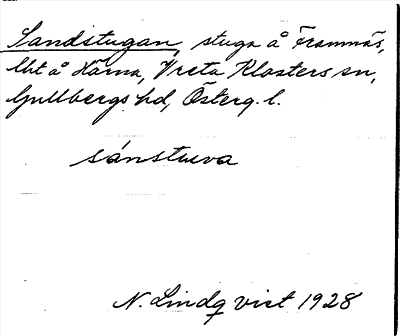 Sandstugan, stuga å Framnäs,
lht å Härna, Vreta Klosters sn,
Gullbergs hd, Österg. l.
sánstuva
N. Lindqvist 1928